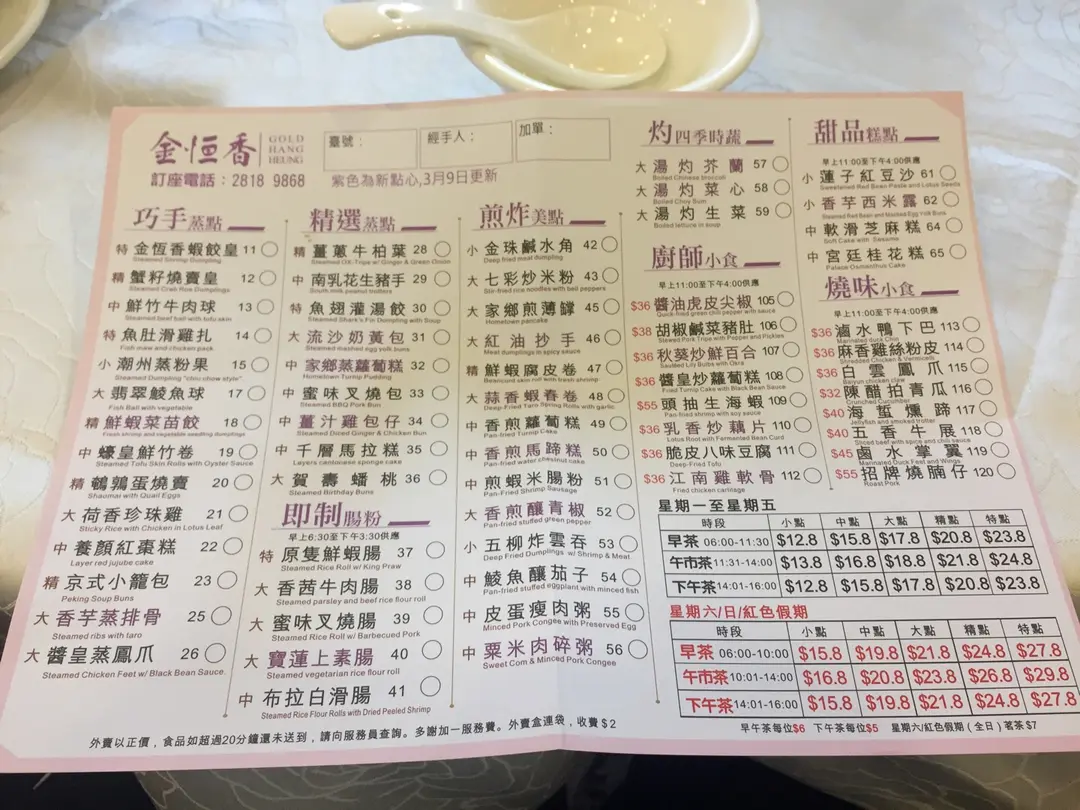 金恒香
GOLD
HANG
HEUNG
訂座電話：2818 9868
臺號：
經手人：
加單：
紫色為新點心,3月9日更新
巧手蒸點
特 金恆香蝦餃皇 11
Steamed Shrimp Dumping
精 蟹籽燒賣皇 12
Steamed Crab Roe Dumplings
中 鮮竹牛肉球 13
Steamed beef ball with tofu skin
特 魚肚滑雞扎 14
Fish maw and chicken pack
小 潮州蒸粉果 15
Steamed Dumpling "chiu chow style"
大 翡翠鯪魚球 17
Fish Ball with vegetable
精 鮮蝦菜苗餃 18
Fresh shrimp and vegetable seedling dumplings
中 蠔皇鮮竹卷 19
Steamed Tofu Skin Rolls with Oyster Sauce
精 鵪鶉蛋燒賣 20
Shaomai with Quail Eggs
大 荷香珍珠雞 21
Sticky Rice with Chicken in Lotus Leaf
中 養顏紅棗糕 22
Layer red jujube cake
精 京式小籠包 23
Peking Soup Buns
大 香芋蒸排骨 25
Steamed ribs with taro
大 醬皇蒸鳳爪 26
Steamed Chicken Feet w/ Black Bean Sauce
精選蒸點
精 薑蔥牛柏葉 28
Steamed OX-Tripe w/ Ginger & Green Onion
中 南乳花生豬手 29
South milk peanut trotters
特 魚翅灌湯餃 30
Steamed Shark's Fin Dumpling with Soup
大 流沙奶黃包 31
Steamed mashed egg yolk buns
大 家鄉蒸蘿蔔糕 32
Hometown Turnip Pudding
中 蜜味叉燒包 33
Steamed BBQ Pork Bun
中 薑汁雞包仔 34
Steamed Diced Ginger & Chicken Bun
中 千層馬拉糕 35
Layers cantonese sponge cake
大 賀壽蟠桃 36
Steamed Birthday Buns
即制腸粉
早上6:30至下午3:30供應
特 原隻鮮蝦腸 37
Steamed Rice Roll w/ King Praw
大 香茜牛肉腸 38
Steamed parsley and beef rice flour roll
大 蜜味叉燒腸 39
Steamed Rice Roll w/ Barbecued Pork
大 寶蓮上素腸 40
Steamed vegetarian rice flour roll
中 布拉白滑腸 41
Steamed Rice Flour Rolls with Dried Peeled Shrimp
煎炸美點
小 金珠鹹水角 42
Deep fried meat dumpling
大 七彩炒米粉 43
Stir-fried rice noodles with bell peppers
大 家鄉煎薄罉 45
Hometown pancake
大 紅油抄手 46
Meat dumplings in spicy sauce
精 鮮蝦腐皮卷 47
Beancurd skin roll with fresh shrimp
大 蒜香蝦春卷 48
Deep-Fried Taro Spring Rolls with garlic
中 香煎蘿蔔糕 49
Pan-Fried Turnip Cake
中 香煎馬蹄糕 50
Pan-Fried water chestnut cake
中 煎蝦米腸粉 51
Pan-Fried Shrimp Sausage
大 香煎釀青椒 52
Pan-fried stuffed green pepper
小 五柳炸雲吞 53
Deep Fried Dumplings w/ Shrimp & Meat
中 鯪魚釀茄子 54
Pan-fried stuffed eggplant with minced fish
中 皮蛋瘦肉粥 55
Minced Pork Congee with Preserved Egg
中 粟米肉碎粥 56
Sweet Corn & Minced Pork Congee
灼四季時蔬
大 湯灼芥蘭 57
Boiled Chinese broccoli
大 湯灼菜心 58
Boiled Choy Sum
大 湯灼生菜 59
Boiled lettuce in soup
廚師小食
早上11:00至下午4:00供應
$36 醬油虎皮尖椒 105
Quick-fried green chili pepper with sauce
$38 胡椒鹹菜豬肚 106
Stewed Pork Tripe with Pepper and Pickles
$36 秋葵炒鮮百合 107
Sauted Lily Bulbs with Okra
$36 醬皇炒蘿蔔糕 108
Fried Turnip Cake with Black Bean Sauce
$55 頭抽生海蝦 109
Pan-fried shrimp with soy sauce
$36 乳香炒藕片 110
Lotus Root with Fermented Bean Curd
$36 脆皮八味豆腐 111
Deep-Fried Tofu
$36 江南雞軟骨 112
Fried chicken cartilage
甜品糕點
早上11:00至下午4:00供應
小 蓮子紅豆沙 61
Sweetened Red Bean Paste and Lotus Seeds
小 香芋西米露 62
中 軟滑芝麻糕 64
Soft Cake with Sesame
中 宮廷桂花糕 65
Palace Osmanthus Cake
燒味小食
早上11:00至下午4:00供應
$36 滷水鴨下巴 113
Marinated duck Chin
$36 麻香雞絲粉皮 114
Shredded Chicken & Vermicelli
$36 白雲鳳爪 115
Baiyun chicken claw
$32 陳醋拍青瓜 116
Crunched Cucumber
$40 海蜇燻蹄 117
Jellyfish and smoked trotter
$40 五香牛展 118
Sliced beef with spice and chili sauce
$45 鹵水掌翼 119
Marinated Duck Feet and Wings
$55 招牌燒腩仔 120
Roast Pork
星期一至星期五
時段 小點 中點 大點 精點 特點
早茶 06:00-11:30 $12.8 $15.8 $17.8 $20.8 $23.8
午市茶 11:31-14:00 $13.8 $16.8 $18.8 $21.8 $24.8
下午茶 14:01-16:00 $12.8 $15.8 $17.8 $20.8 $23.8
星期六/日/紅色假期
時段 小點 中點 大點 精點 特點
早茶 06:00-10:00 $15.8 $19.8 $21.8 $24.8 $27.8
午市茶 10:01-14:00 $16.8 $20.8 $23.8 $26.8 $29.8
下午茶 14:01-16:00 $15.8 $19.8 $21.8 $24.8 $27.8
早午茶每位$6 下午茶每位$5 星期六/紅色假期（全日）茗茶$7
外賣以正價，食品如超過20分鐘還未送到，請向服務員查詢。多謝加一服務費。外賣盒連袋，收費$2